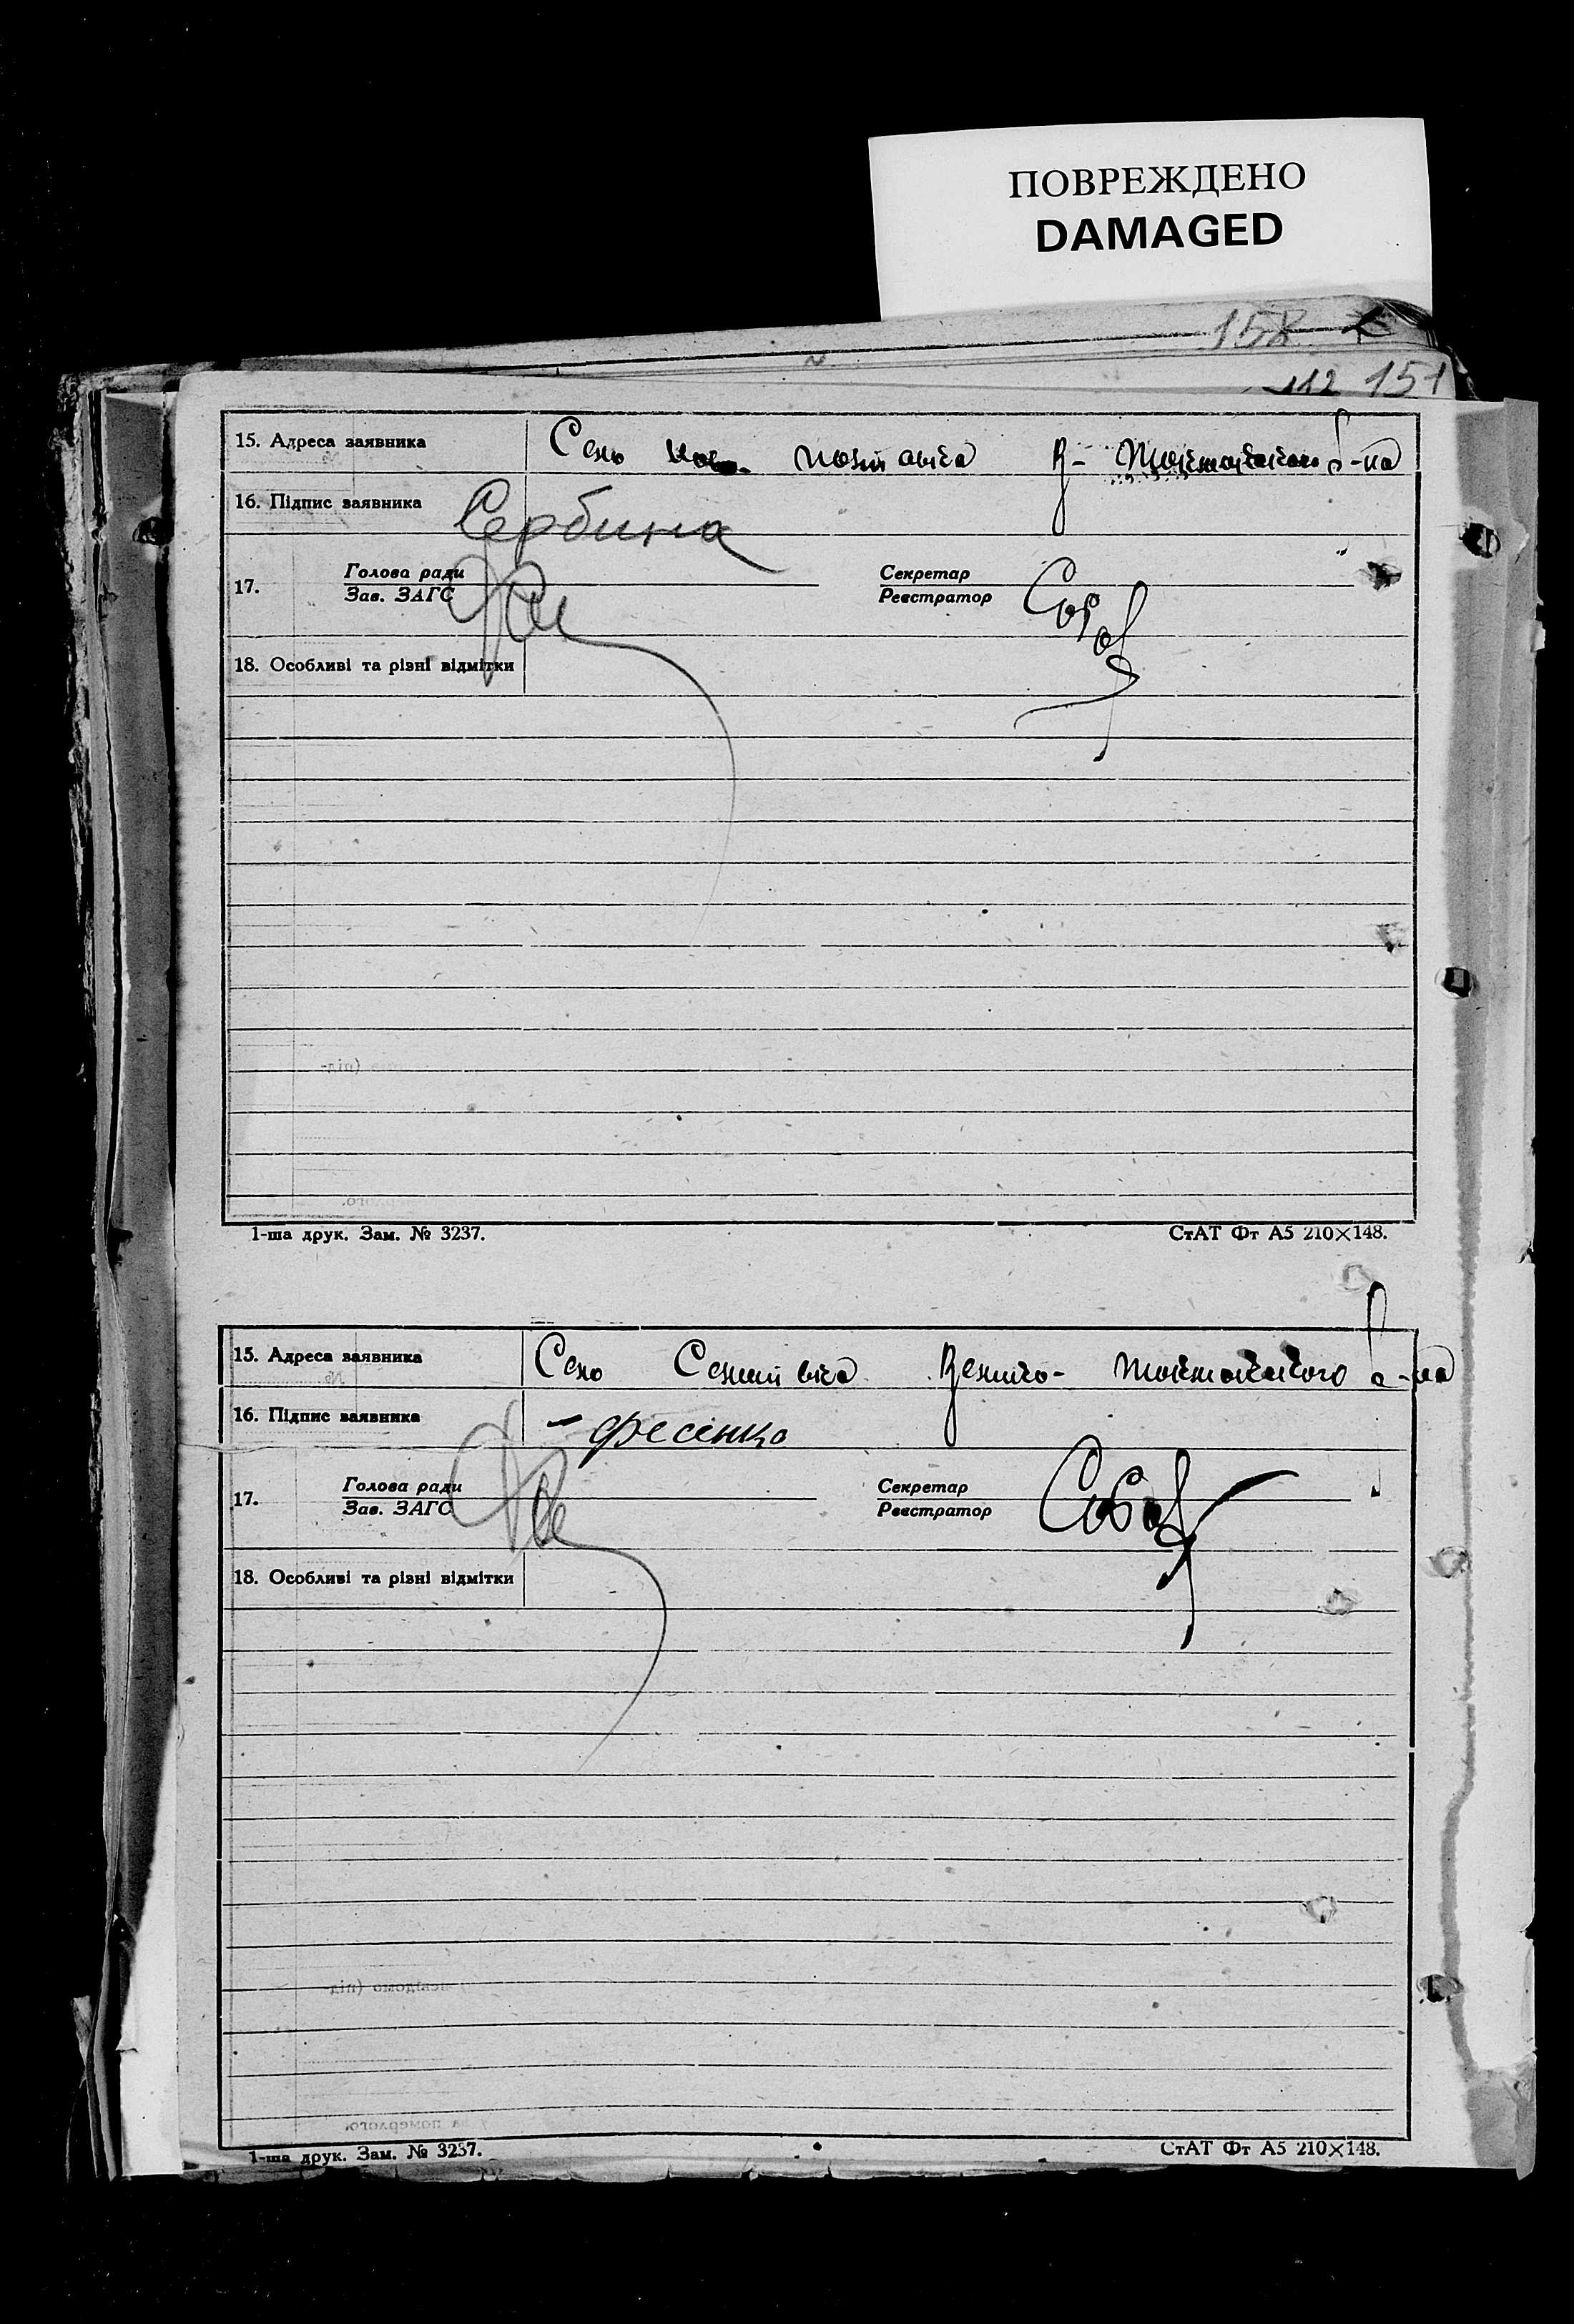 ПОВРЕЖДЕНО
DAMAGED
158
112 151
15. Адреса заявника Село
16. Підпис заявника Сербина
17. Голова ради Секретар
Зав. ЗАГС Реєстратор
18. Особливі та різні відмітки
1-ша друк. Зам. № 3237. СтАТ Фт А5 210×148.
15. Адреса заявника Село Велико- Токмакского р-на
16. Підпис заявника Фесенко
17. Голова ради Секретар
Зав. ЗАГС Реєстратор
18. Особливі та різні відмітки
1-ша друк. Зам. № 3237. СтАТ Фт А5 210×148.